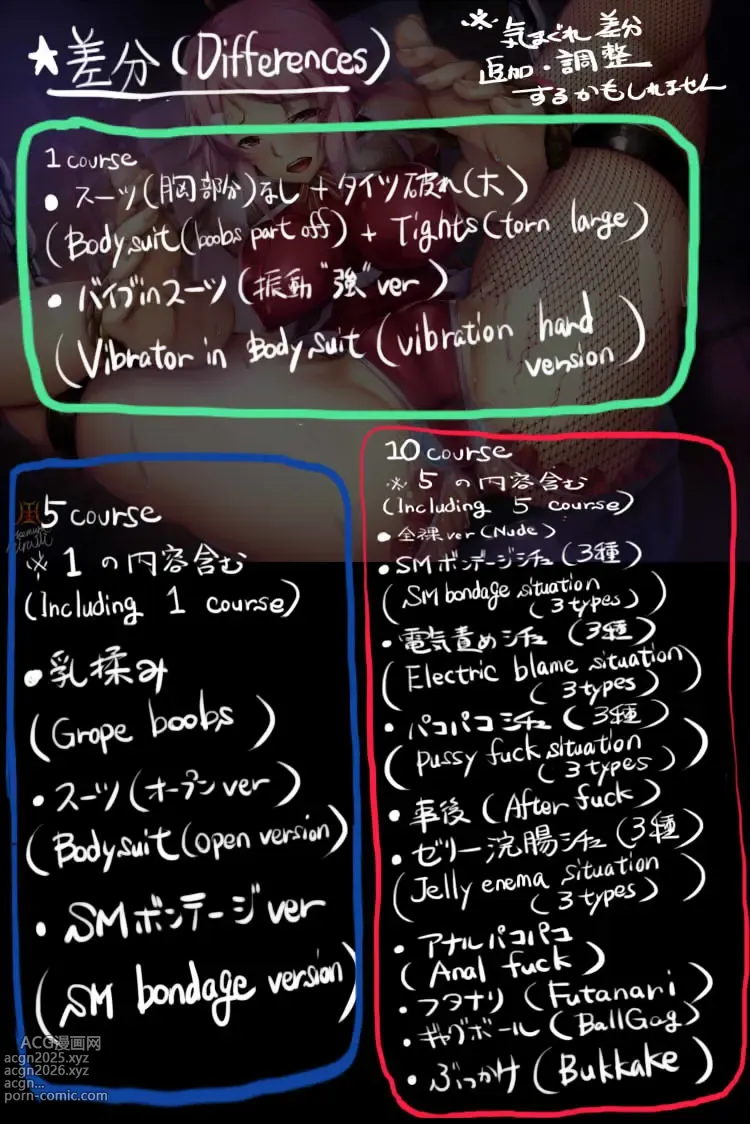 ★差分(Differences)
※気まぐれ差分
追加・調整
するかもしれません
1 course
• スーツ(胸部分)なし + タイツ破れ(大)
(Bodysuit(boobs part off) + Tights(torn large)
• バイブinスーツ(振動"強"ver)
(Vibrator in Bodysuit (vibration hard
version)
5 course
※ 1 の内容含む
(Including 1 course)
• 乳揉み
(Grope boobs)
• スーツ(オープンver)
(Bodysuit(open version)
• SMボンテージver
(SM bondage version)
10 course
※ 5 の内容含む
(Including 5 course)
• 全裸ver(Nude)
• SMボンデージシチュ(3種)
(SM bondage situation
(3 types))
• 電気責めシチュ(3種)
(Electric blame situation
(3 types))
• パコパコシチュ(3種)
(Pussy fuck situation
(3 types))
• 事後(After fuck)
• ゼリー浣腸シチュ(3種)
(Jelly enema situation
(3 types))
• アナルパコパコ
(Anal fuck)
• フタナリ(Futanari)
• ギャグボール(BallGag)
• ぶっかけ(Bukkake)
ACG漫画网
acgn2025.xyz
acgn2026.xyz
acgn...
porn-comic.com